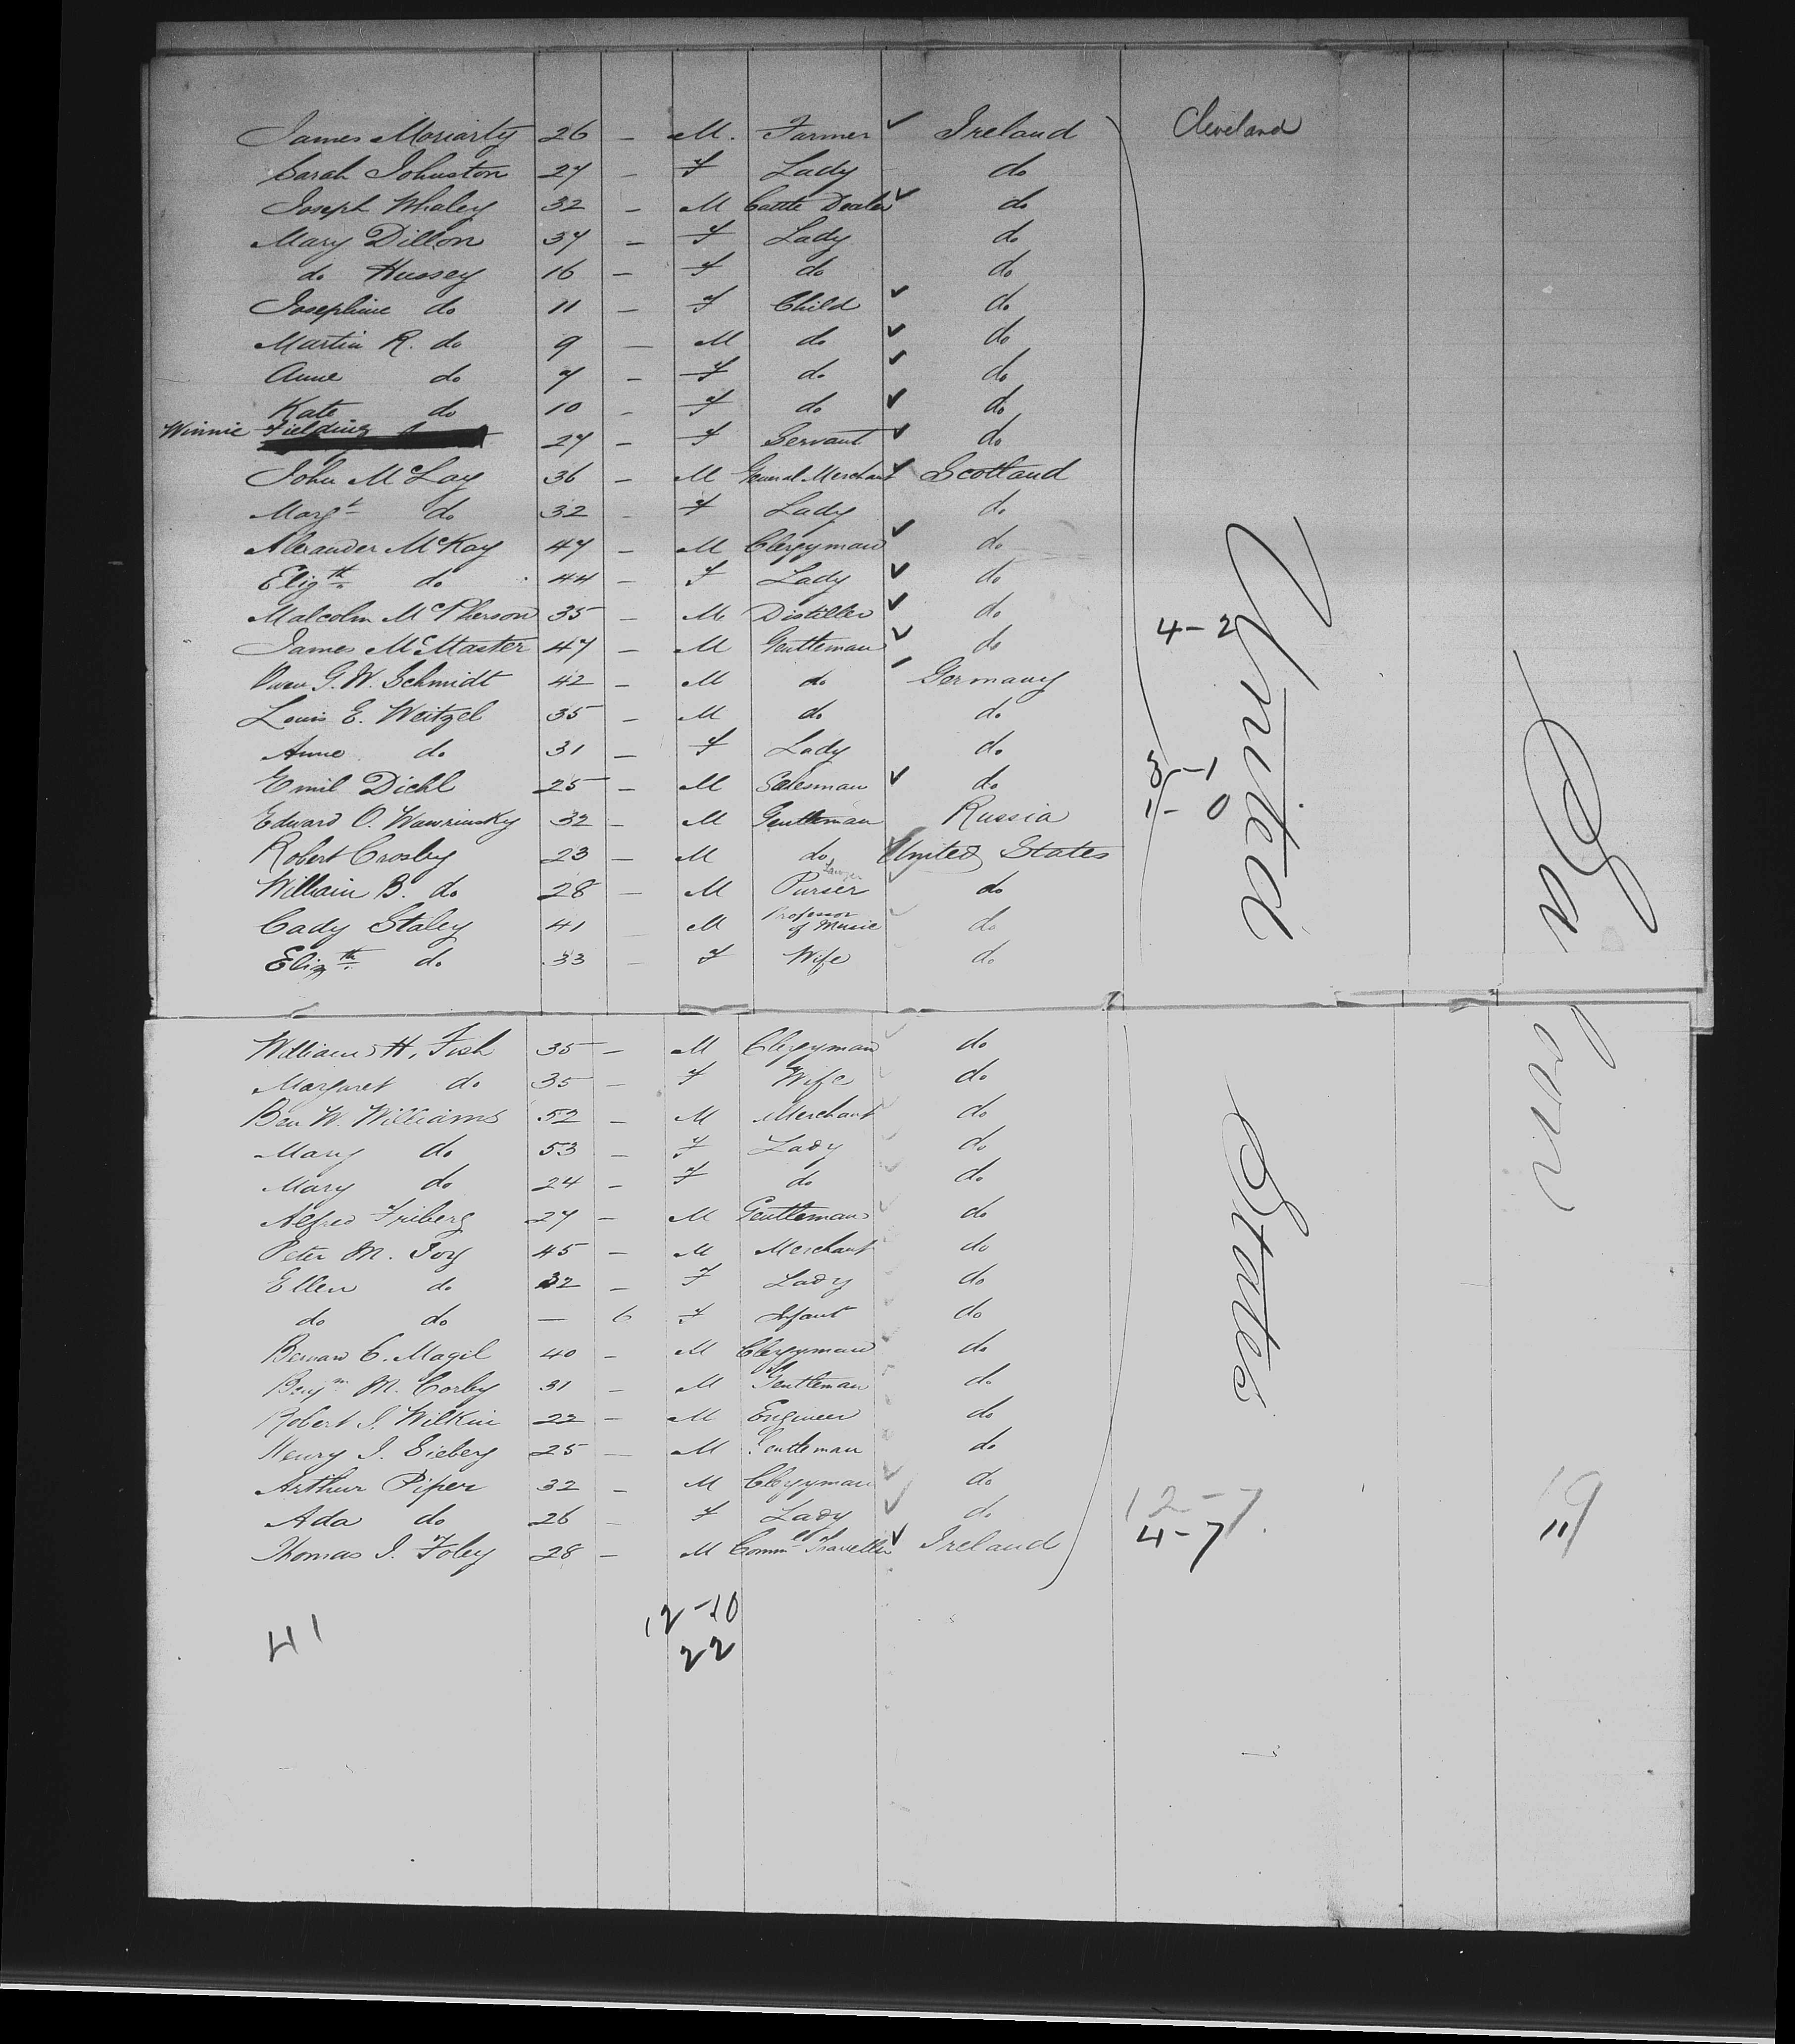 James Moriarty 26 — M. Farmer ✓ Ireland Cleveland
Sarah Johnston 27 — F Lady do
Joseph Whaley 32 — M Cattle Dealer ✓ do
Mary Dillon 37 — F Lady do
do Hussey 16 — F do do
Josephine do 11 — F Child ✓ do
Martin R. do 9 — M do ✓ do
Anne do 7 — F do ✓ do
Kate do 10 — F do ✓ do
Winnie Fielding 27 — F Servant ✓ do
John McLay 36 — M General Merchant ✓ Scotland
Margt do 32 — F Lady do
Alexander McKay 47 — M Clergyman ✓ do
Elizth do 44 — F Lady ✓ do
Malcolm McPherson 35 — M Distiller ✓ do
James McMaster 47 — M Gentleman ✓ do 4-2
G. W. Schmidt 42 — M do Germany
Louis E. Weitzel 35 — M do do
Anne do 31 — F Lady do
Emil Diehl 25 — M Salesman ✓ do 3-1
Edward O. Wawrinsky 32 — M Gentleman Russia 1-0
Robert Crosby 23 — M do United States
William B. do 28 — M Purser Lawyer do
Cady Staley 41 M Professor of Music do
Elizth do 33 — F Wife do
William H. Fish 35 — M Clergyman do
Margaret do 35 — F Wife do
Ben W. Williams 52 — M Merchant do
Mary do 53 — F Lady do
Mary do 24 — F do do
Alfred Friberg 27 — M Gentleman do
Peter M. Joy 45 — M Merchant do
Ellen do 32 — F Lady do
do do — 6 F Infant do
C. Magil 40 — M Clergyman do
Benjm M. Corby 31 — M Gentleman do
Robert J. Wilkin 22 — M Engineer do
Henry J. Sieberg 25 — M Gentleman do
Arthur Piper 32 — M Clergyman ✓ do
Ada do 26 — F Lady ✓ do 12-7
Thomas J. Foley 28 — M Comml Traveller ✓ Ireland 4-7
United States
12-10
41 22